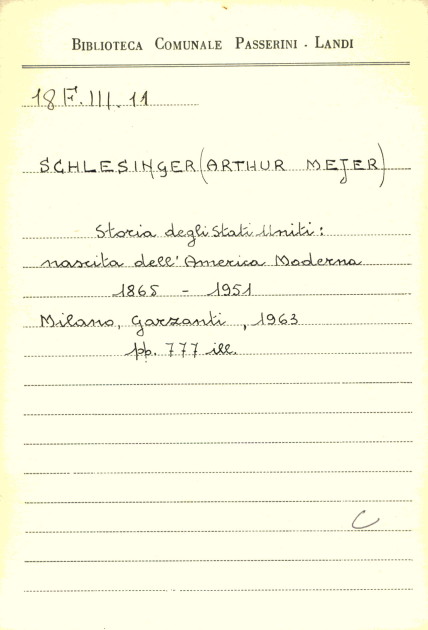 BIBLIOTECA COMUNALE PASSERINI - LANDI
18 F. III. 11
SCHLESINGER (ARTHUR MEJER)
Storia degli Stati Uniti:
nascita dell'America Moderna
1865 - 1951
Milano, Garzanti, 1963
pp. 777 ill.
C